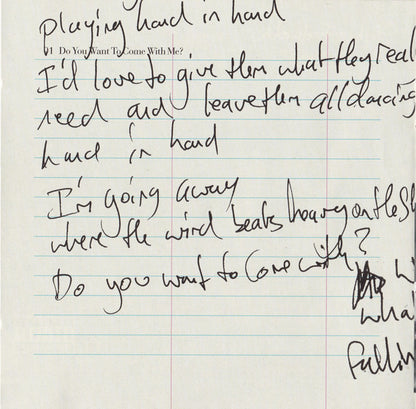 playing hand in hand
01 Do You Want To Come With Me?
I'd love to give them what they real
need and leave them all dancing
hand in hand
I'm going away
where the wind beats heavy on the Sh
Do you want to come with?
wha
fallin